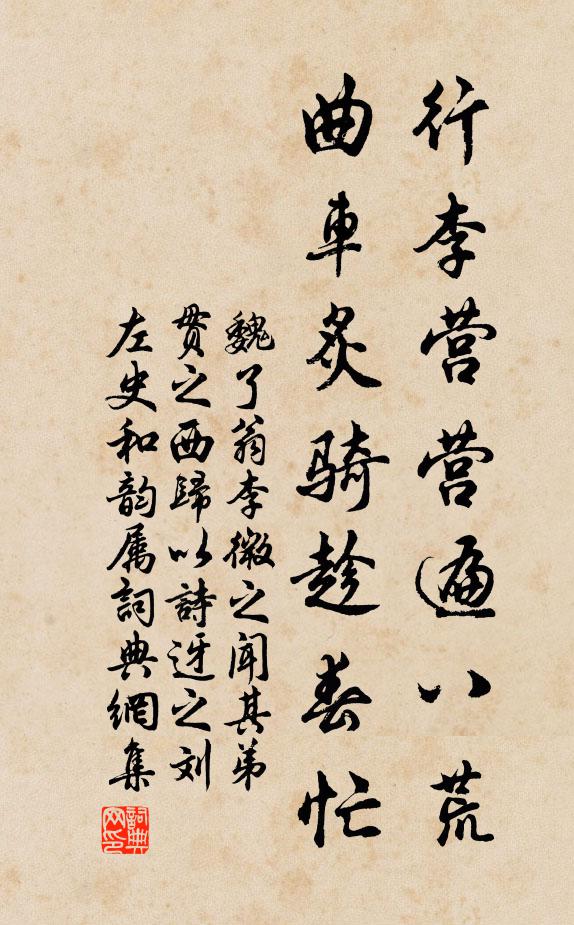 行李营营遍八荒
曲車炙騎趁春忙
魏了翁李微之闻其弟
贯之西歸以詩迓之刘
左史和韵属詞典網集
詞典网印